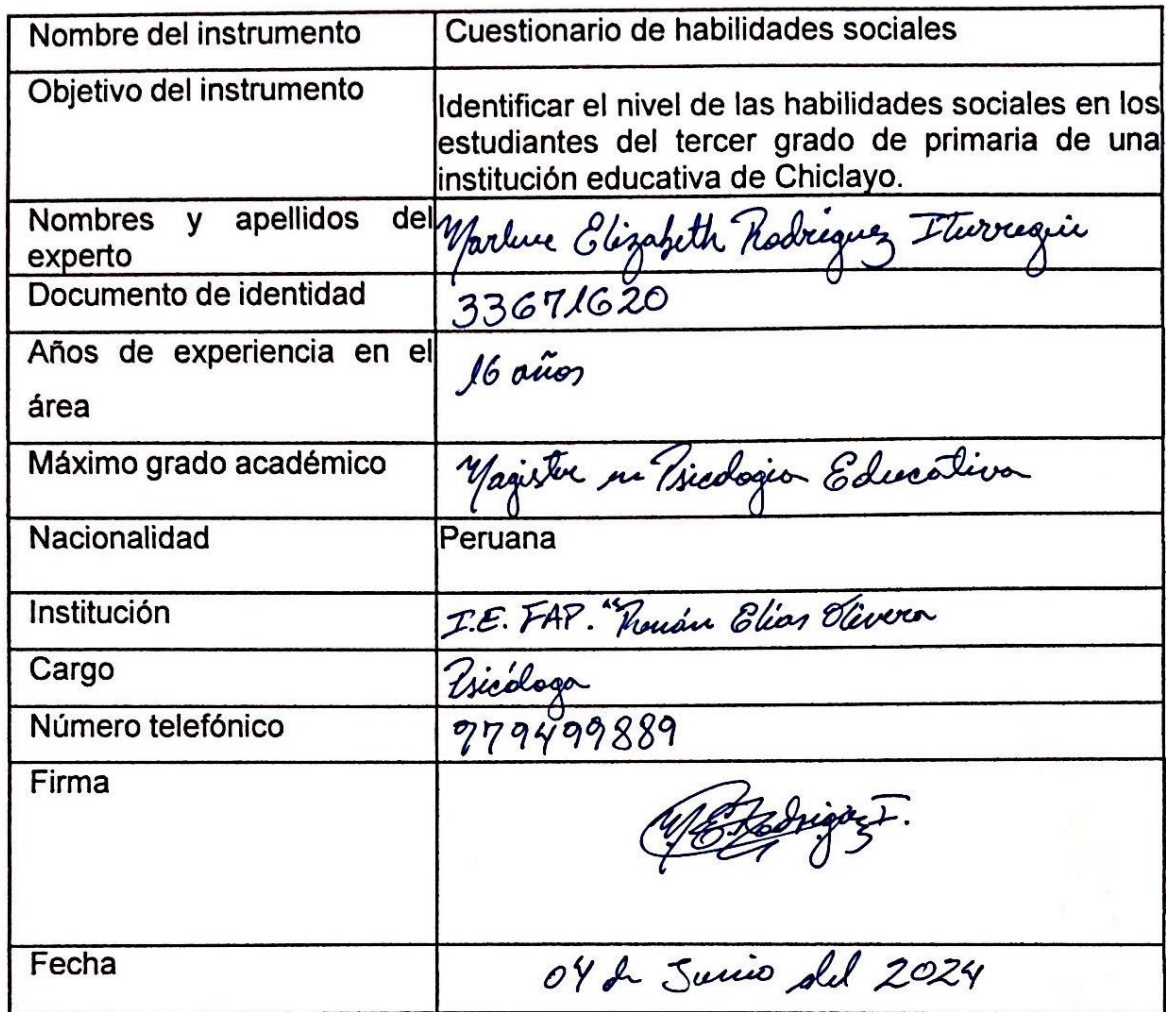 Nombre del instrumento
Cuestionario de habilidades sociales
Objetivo del instrumento
Identificar el nivel de las habilidades sociales en los
estudiantes del tercer grado de primaria de una
institución educativa de Chiclayo.
Nombres y apellidos del
experto
Marlene Elizabeth Rodriguez Iturregui
Documento de identidad
33671620
Años de experiencia en el
área
16 años
Máximo grado académico
Magister en Psicologia Educativa
Nacionalidad
Peruana
Institución
I.E. FAP. "Renán Elías Olivera
Cargo
Psicóloga
Número telefónico
979499889
Firma
M.E.Rodriguez I.
Fecha
04 de Junio del 2024